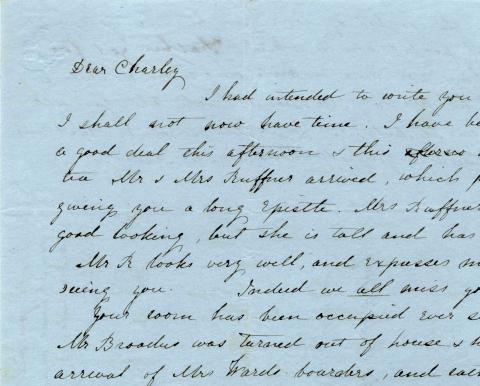 Dear Charley
I had intended to write you
I shall not now have time. I have be
a good deal this afternoon & this
tea Mr & Mrs Ruffner arrived, which p
giving you a long Epistle. Mrs Ruffner
good looking, but she is tall and has
Mr R looks very well, and expesses m
seeing you. Indeed we all miss yo
Your room has been occupied ever s
Mr Broadus was turned out of house & h
arrival of Mrs Wards boarders, and each